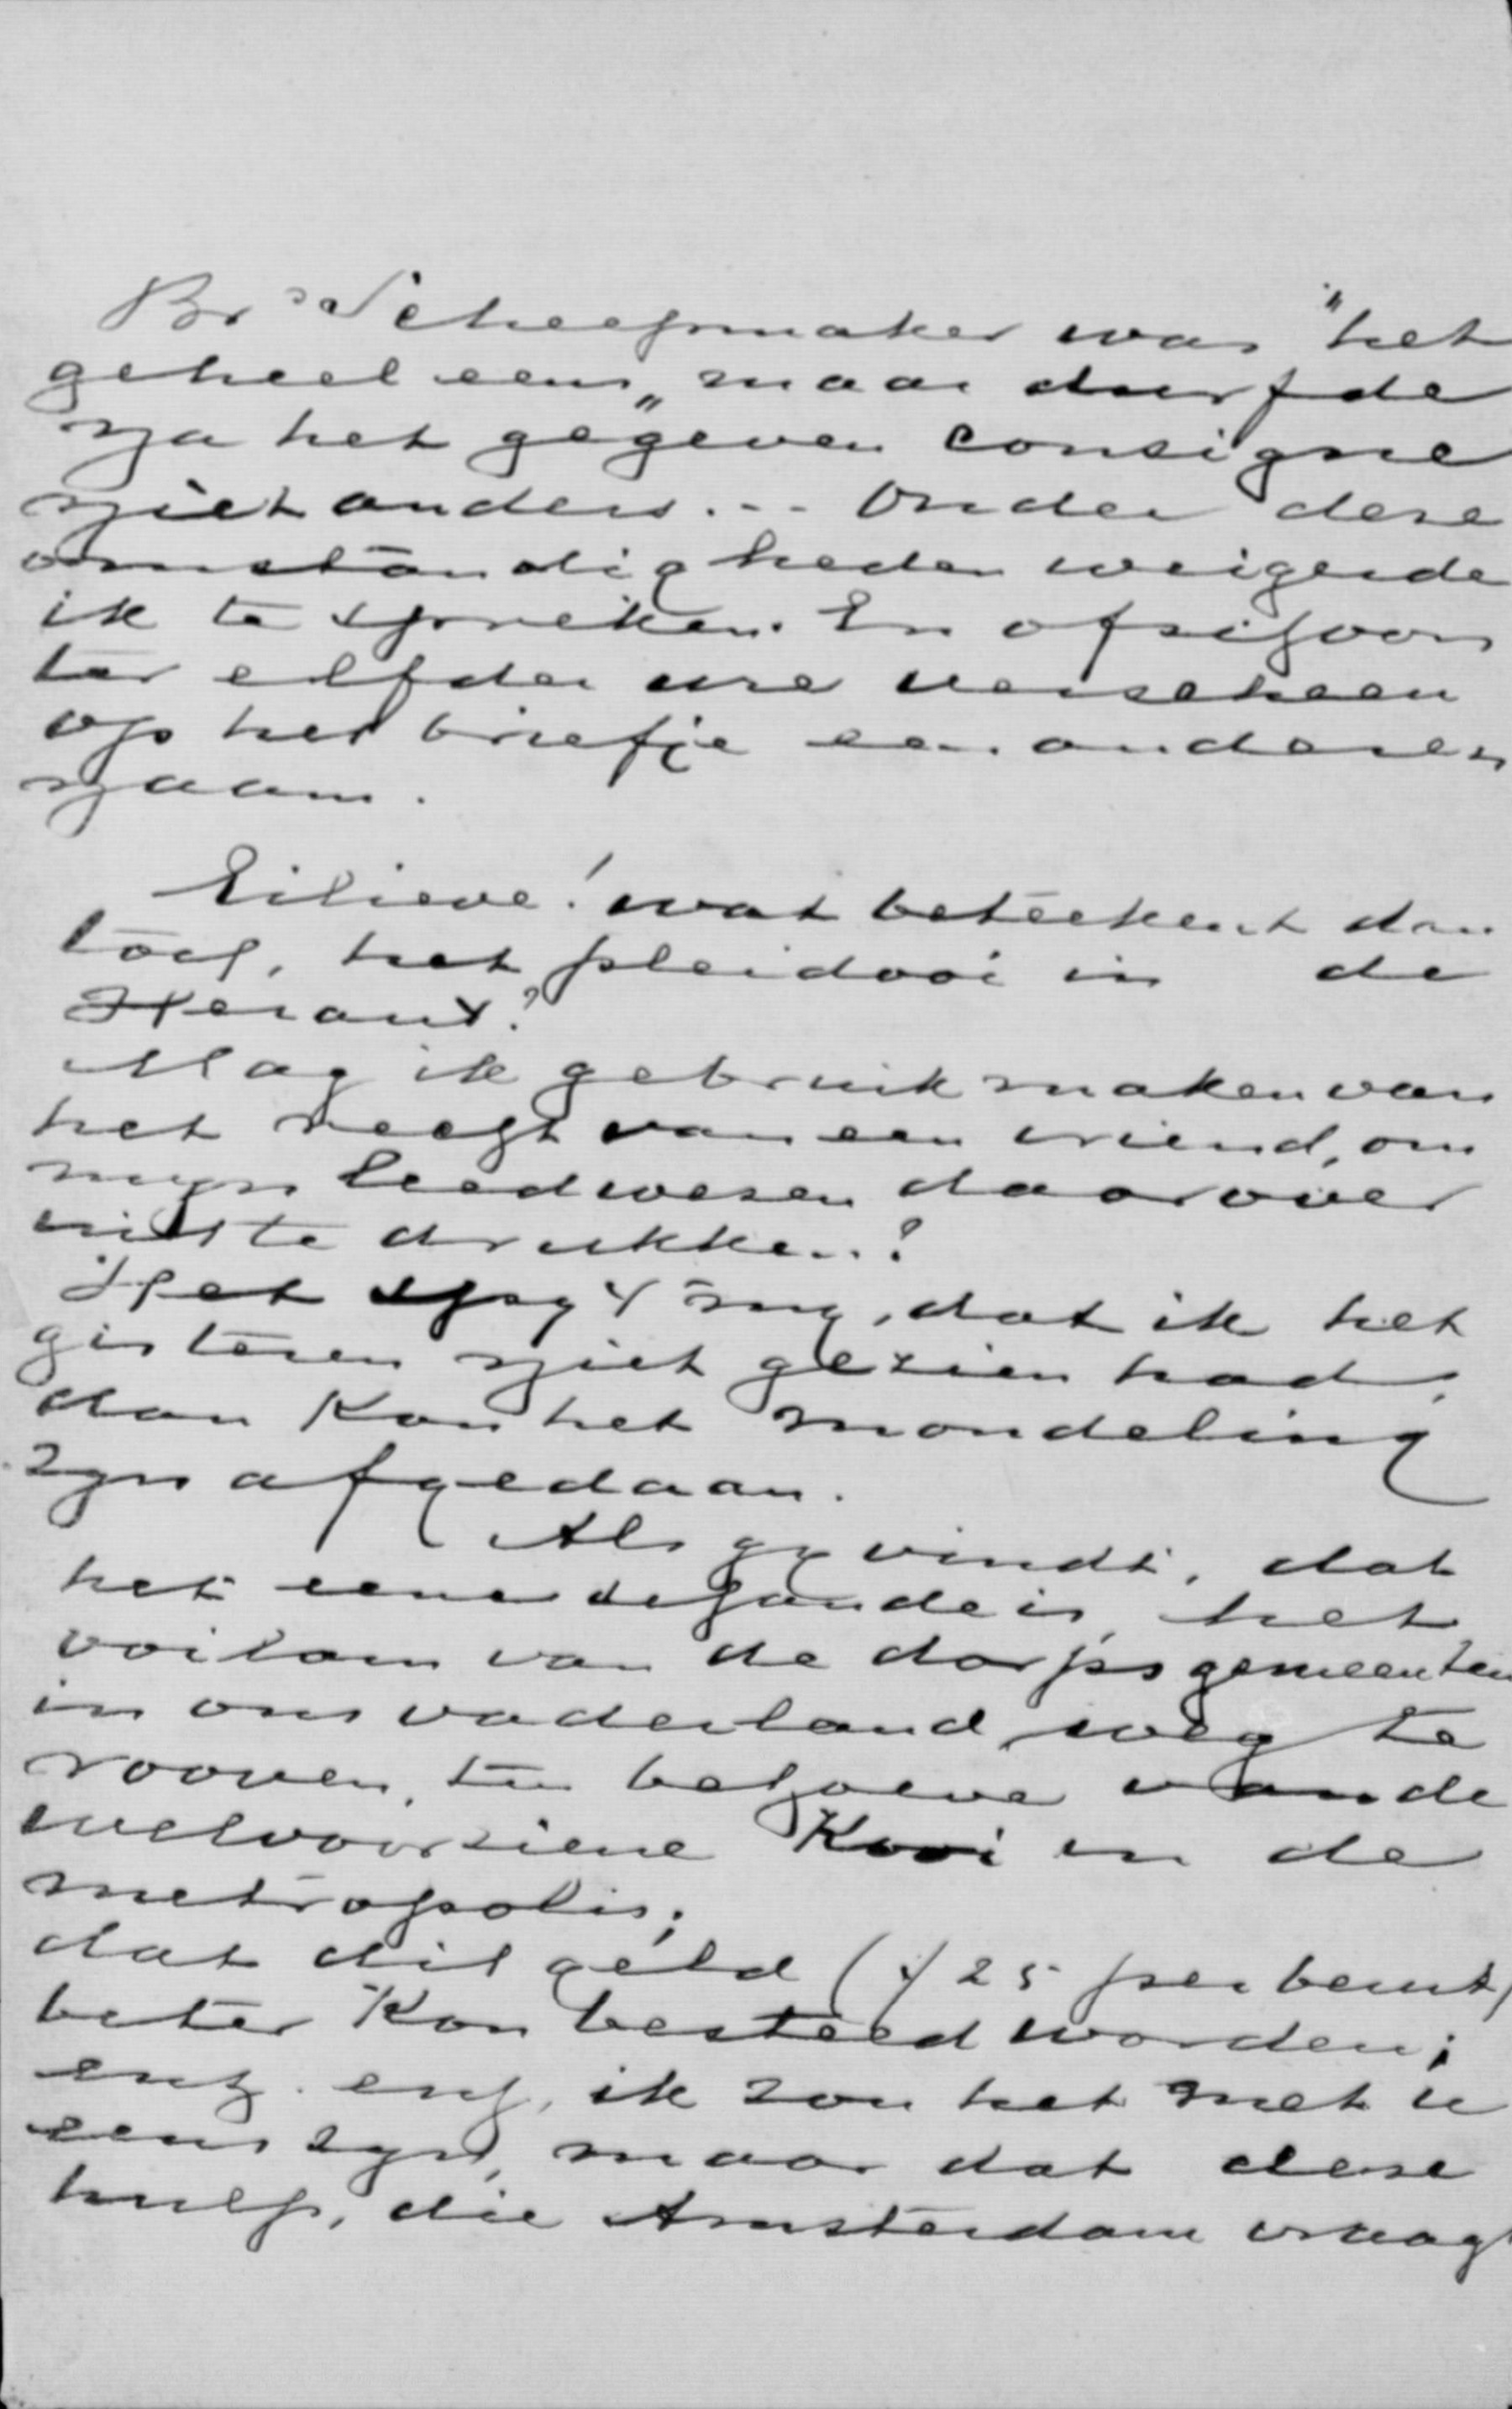 Br Scheepmaker was "het
geheel eens" maar durfde
na het gegeven consigne
niet anders... Onder deze
omstandigheden weigerde
ik te spreken. En
ter elfder ure verscheen
op het briefje een anderen
naam.
Eilieve! wat beteekent dan
toch, het pleidooi in de
Heraut?
Mag ik gebruik maken van
het recht van een vriend, om
myn leedwezen daarover
uit te drukken?
Het spyt my, dat ik het
gisteren niet gezien had,
dan kon het mondeling
zyn afgedaan.
Als gy vindt, dat
het eene schande is, het
ooilam van de dorpsgemeenten
in ons vaderland weg te
rooven, ten behoeve van de
welvoorziene Kooi in de
metropolis;
dat dit geld (ƒ 25 per beurt)
beter kon besteed worden;
enz. enz, ik zou het met u
eens zyn, maar dat deze
hulp, die Amsterdam vraagt